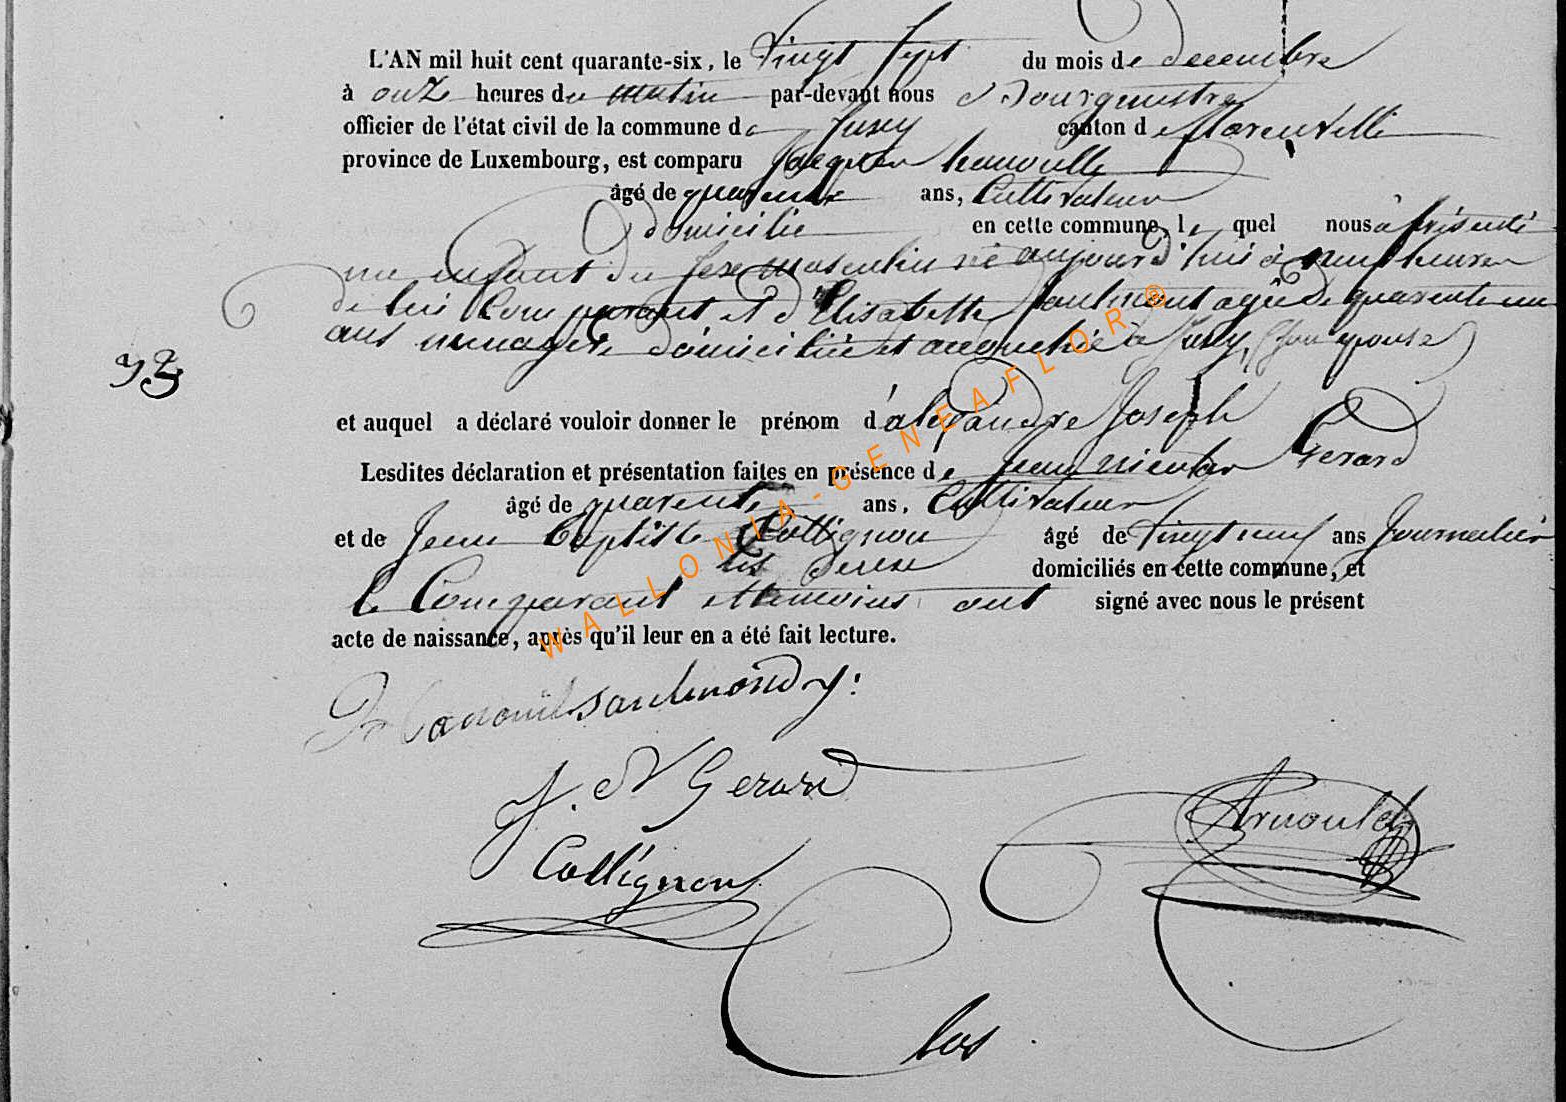 L'AN mil huit cent quarante-six, le Vingt Sept du mois de decembre
à onze heures du matin par-devant nous Bourgmestre
officier de l'état civil de la commune de Jusey canton de florenville
province de Luxembourg, est comparu Jacques
âgé de quarante ans, Cultivateur
domicilié en cette commune, le quel nous a présenté
un enfant du sexe masculin né aujourd'huis à neuf heures
de lui Comparant et d'Elisabette saulmont agée de quarente un
ans menagere domiciliée et accouchée à Jusey, (son epouse)
33
et auquel a déclaré vouloir donner le prénom d'alexandre Joseph
Lesdites déclaration et présentation faites en présence de Jean nicolas Gerard
âgé de quarente ans, Cultivateur
et de Jean Baptiste Collignon âgé de vingt neuf ans Journalier
les deux domiciliés en cette commune, et
le Comparant et temoins ont signé avec nous le présent
acte de naissance, après qu'il leur en a été fait lecture.
saulmond j:
J. N Gerard
Arnould
Collignon
Clos
WALLONIA-GENEAFLOR®